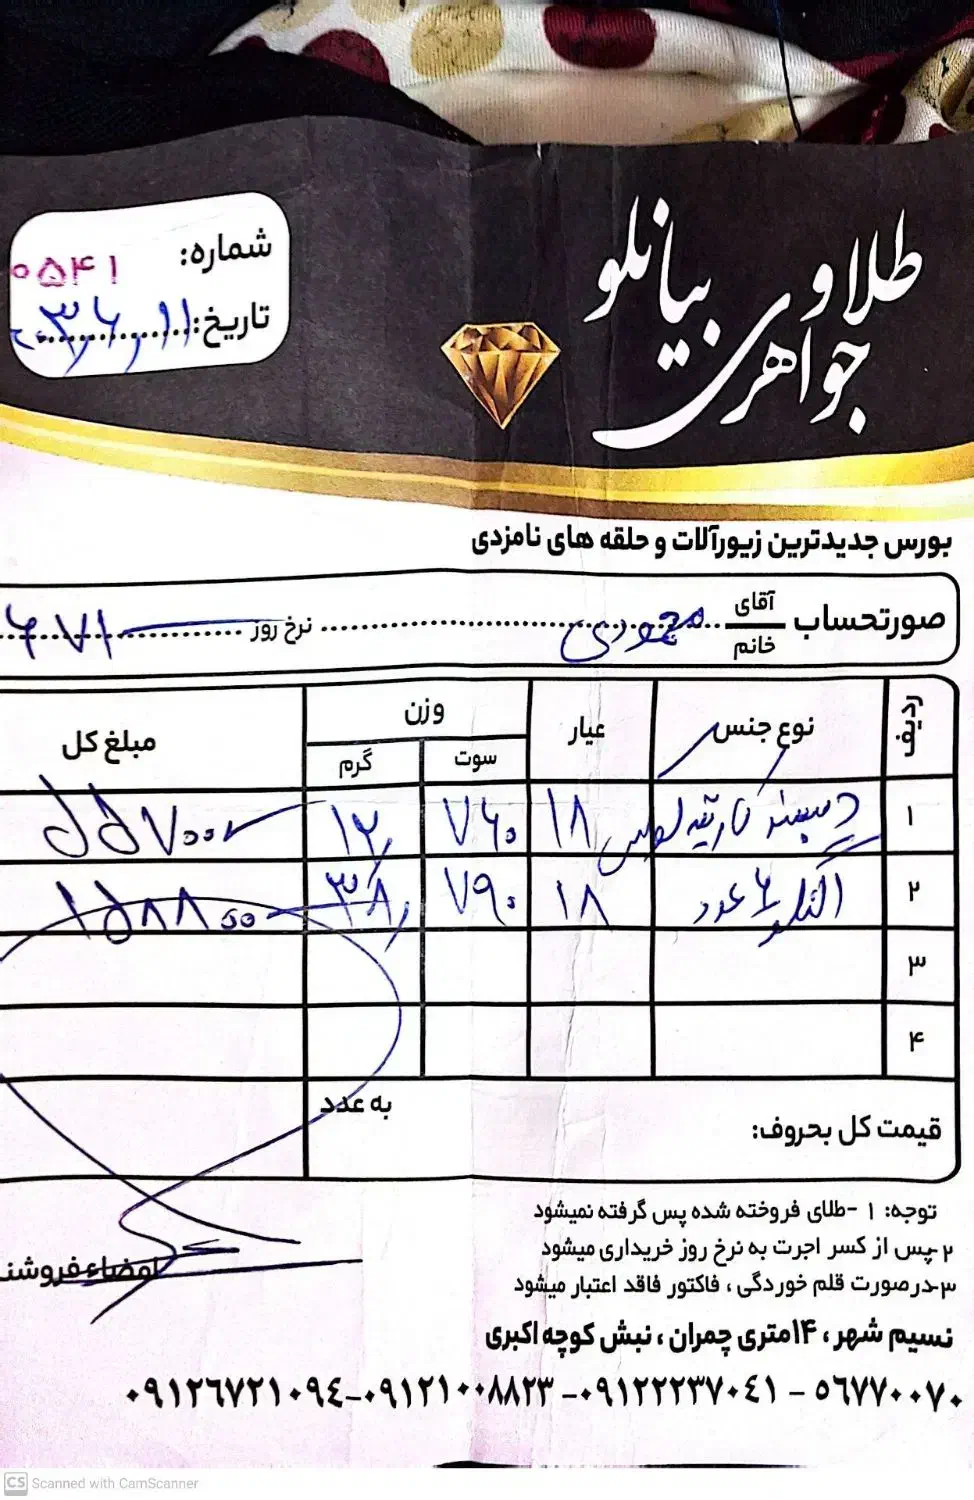 طلا و جواهری بیانلو
شماره: ۰۵۴۱
تاریخ: ۱۱
بورس جدیدترین زیورآلات و حلقه های نامزدی
صورتحساب آقای خانم محمودی نرخ روز ۶۷۱
ردیف نوع جنس عیار وزن مبلغ کل
سوت گرم
۱ دستبند کارتیه ۱۸ ۷۶۰ ۱۲
۲ النگو ۶ عدد ۱۸ ۷۹۰ ۳۸
۳
۴
قیمت کل بحروف: به عدد
توجه: ۱ -طلای فروخته شده پس گرفته نمیشود
۲-پس از کسر اجرت به نرخ روز خریداری میشود
۳-درصورت قلم خوردگی ، فاکتور فاقد اعتبار میشود
امضاء فروشند
نسیم شهر ، ۱۴متری چمران ، نبش کوچه اکبری
۵۶۷۷۰۰۷۰ - ۰۹۱۲۲۲۳۷۰۴۱ -۰۹۱۲۱۰۰۸۸۲۳-۰۹۱۲۶۷۲۱۰۹۴
CS Scanned with CamScanner